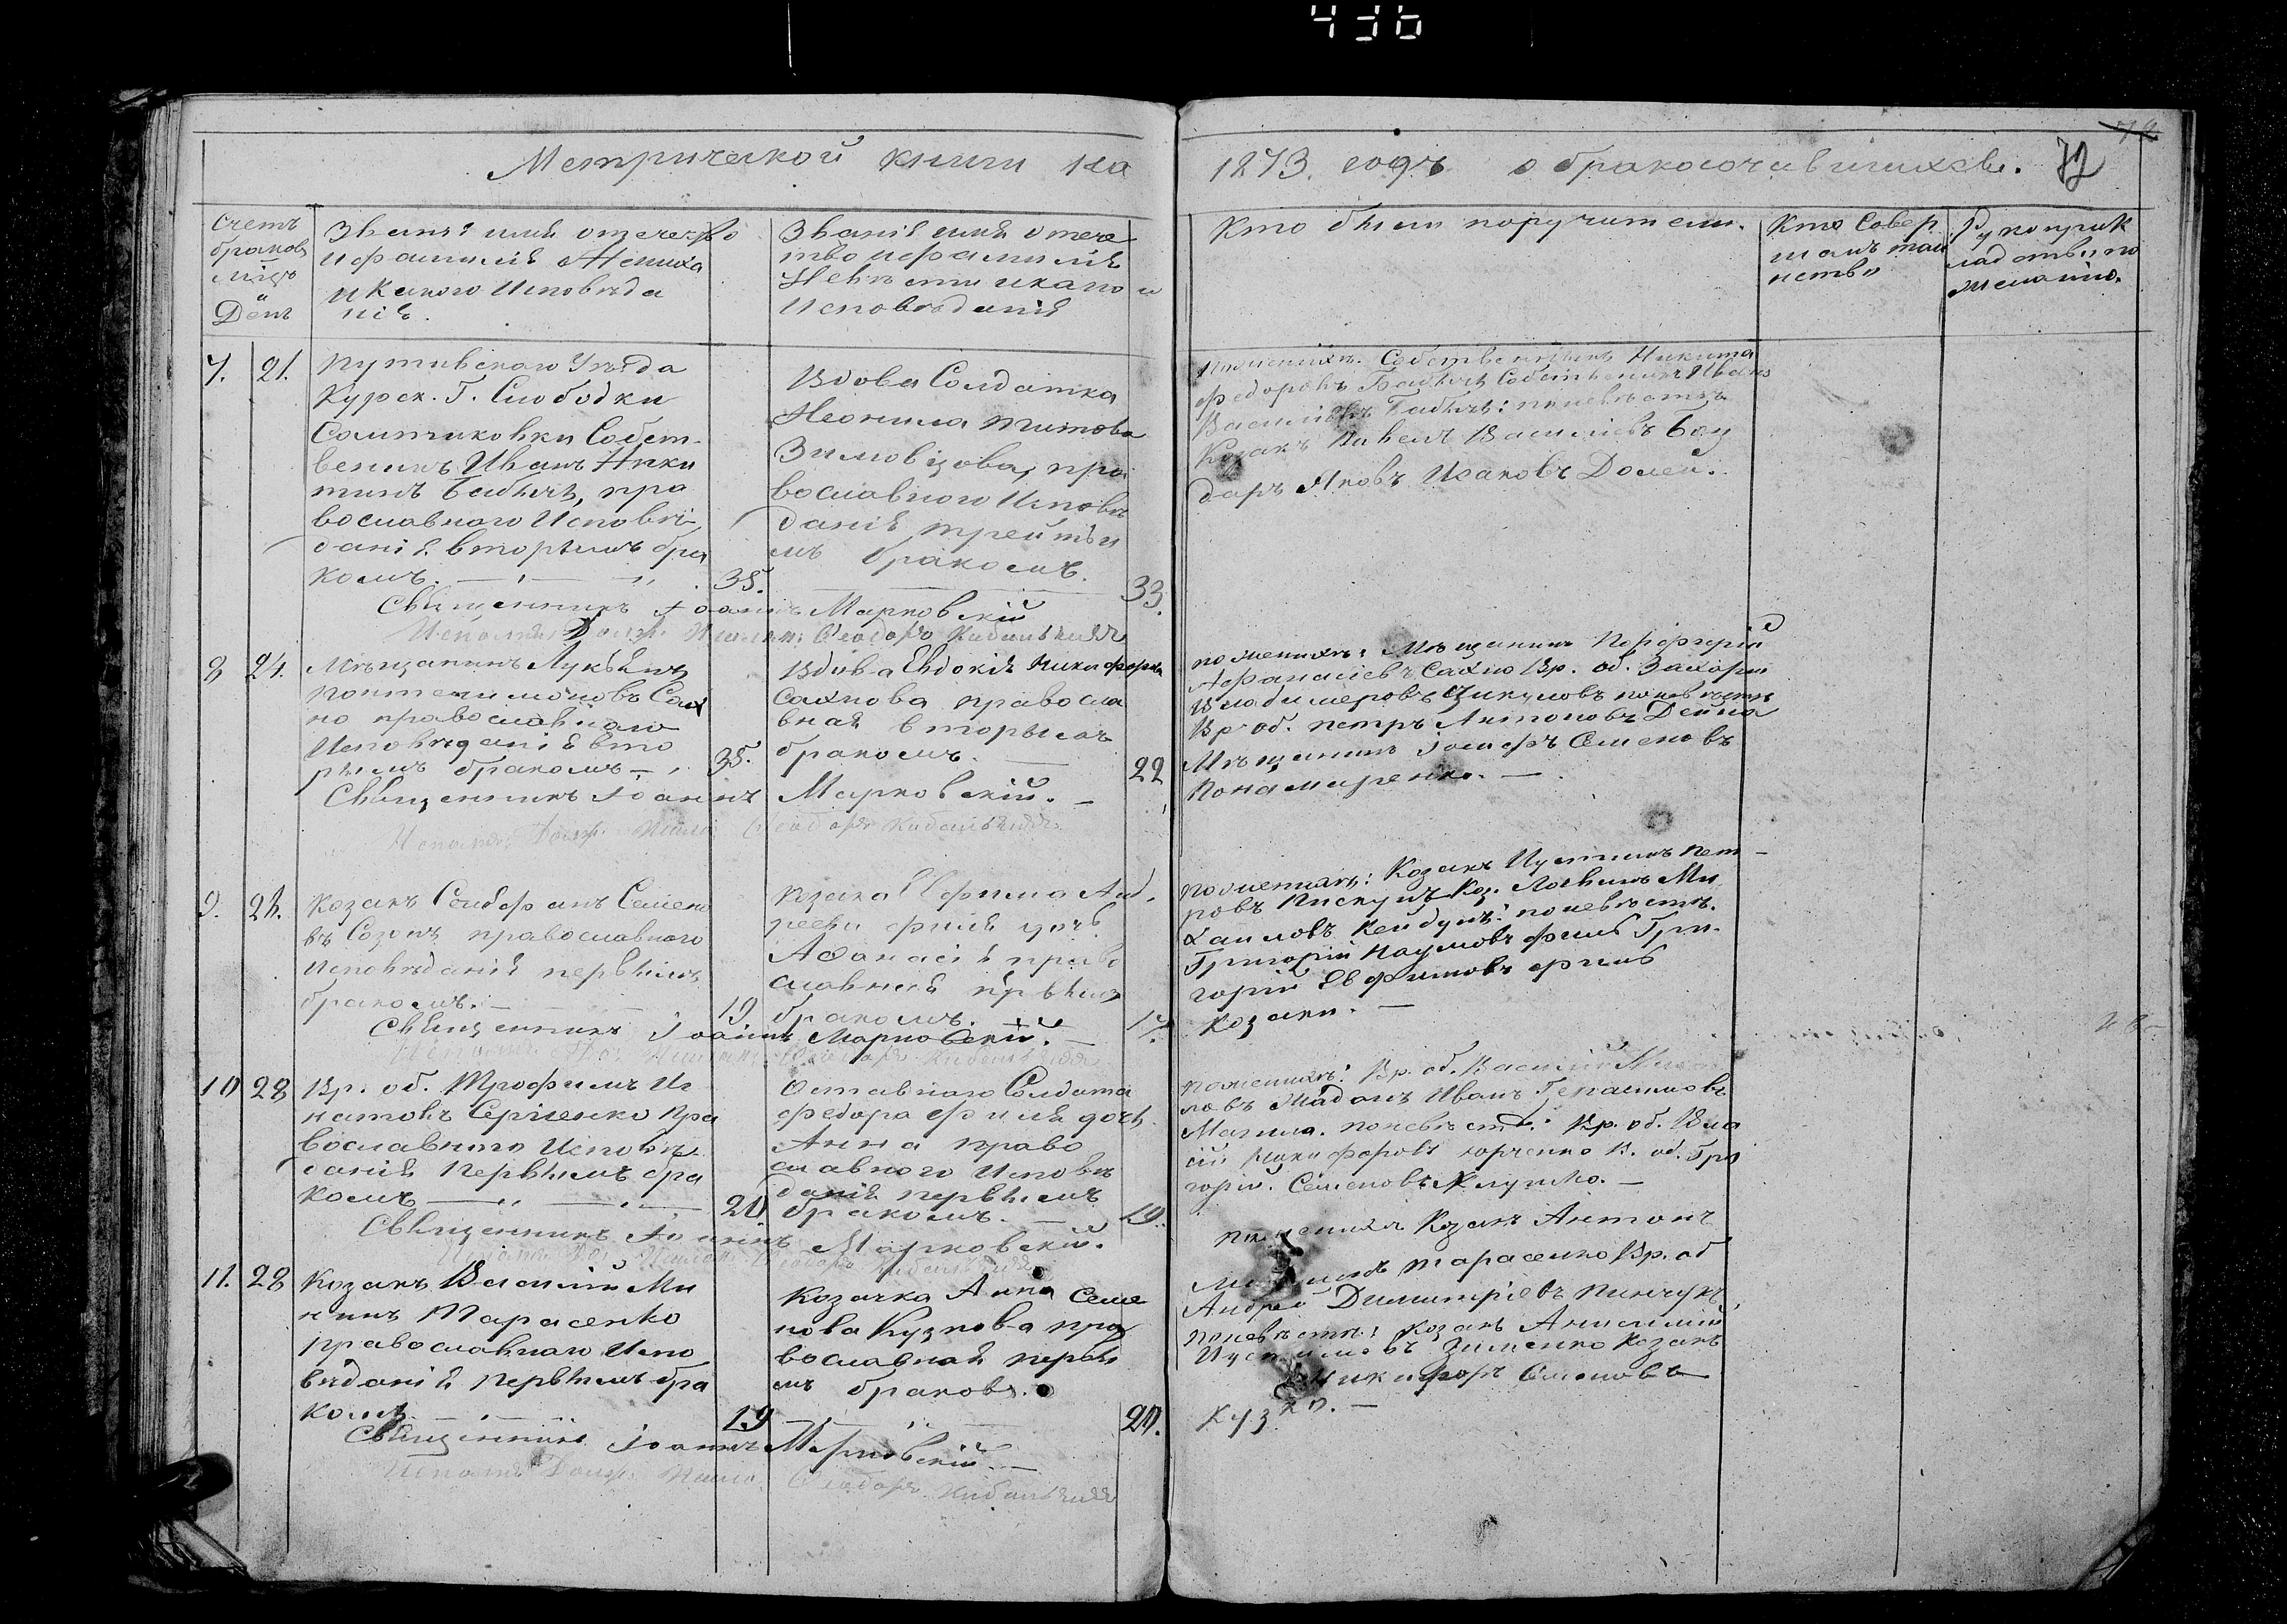 436
Метрической книги на
1873. годъ о бракосочавшихся. 72
Счетъ
браковъ
Мѣцъ
и
День
Званіе имя отечество
и фамиліе Жениха
и Какого Исповѣда
ніе.
Званіе имя отече
тво и фамиліе
Невѣсти и какого
Исповѣданія
Кто были поручители.
Кто Совер
шалъ таи
нство
Рукоприк
ладство по
желанію.
7. 21.
путивскаго Уѣзда
Курск. Г. Слободки
Собст
веникъ Иванъ Ники
тинъ Бабичъ, пра
вославного Исповѣ
данія вторымъ бра
комъ. 35.
Вдова Солдатка
Неонила Титова
Зимовцова, пра
вославного Исповѣ
данія третьи
мъ бракомъ. 33.
по женихѣ. Собственникъ Никита
Федоровъ Бабичъ Собственикъ Иванъ
Василіевъ Бабичъ: по невѣстѣ
Козакъ Павелъ Василіевъ Бон
даръ Яковъ Исаковъ
Священникъ Іоаннъ Марковскій
Исполня. Долж. Псалом. Ѳеодоръ
8 24.
Мѣщанинъ Лукіянъ
Пантелимоновъ Сах
но православного
Исповѣданія вто
рымъ бракомъ 35.
Вдова Евдокія Никифорова
Сахнова правосла
вная вторымъ
бракомъ. 22
по женихѣ: Мѣщанинъ Порфирій
Афанасіевъ Сахно Вр. об. Захарій
Владимеровъ по невѣстѣ
Вр. об. петръ Антоновъ
Мѣщанинъ Іосифъ Семеновъ
Понамаренко.
Священникъ Іоаннъ Марковскій.
Исполня. Долж. Псало. Ѳеодоръ
9. 24.
Козакъ Семено
въ Созонъ православного
Исповѣданія первымъ
бракомъ. 19
козака Ефима Анд
реева филя дочь
Афанасія право
славная первымъ
бракомъ. 17.
по женихѣ: Козакъ Иустинъ Пет
ровъ Пискунъ Коз. Логвинъ Ми
хаиловъ по невѣстѣ.
Григорій Наумовъ филь Гри
горій Евфимовъ филь
козаки.
Священникъ Іоаннъ Марковскій.
10 28
Вр. об. Трофимъ Иг
натовъ Сергіенко пра
вославного Исповѣ
данія первымъ бра
комъ 20
Отставного Солдата
Федора филя дочь
Анна право
славного Исповѣ
данія первымъ
бракомъ. 19.
по женихѣ: Вр. об. Василій Михаи
ловъ Иванъ Герасимовъ
Магила. по невѣстѣ: Вр. об. Васи
лій Никифоровъ юрченко В. об. Гри
горій. Семеновъ
Священникъ Іоаннъ Марковскій.
11. 28
Козакъ Василій Ми
нинъ Тарасенко
православного Испо
вѣданія первымъ бра
комъ 19
Козачка Анна Семе
нова Кузнова пра
вославная первы
мъ браковъ. 20.
по женихѣ Козакъ Антонъ
Тарасенко Вр. об
Андрей Димитріевъ Пинчукъ,
по невѣстѣ: козакъ Анисимій
Иустимовъ Зименко Козакъ
Никифоръ Семеновъ
Священникъ Іоаннъ Марковскій.
Исполня. Долж. Псало. Ѳеодоръ